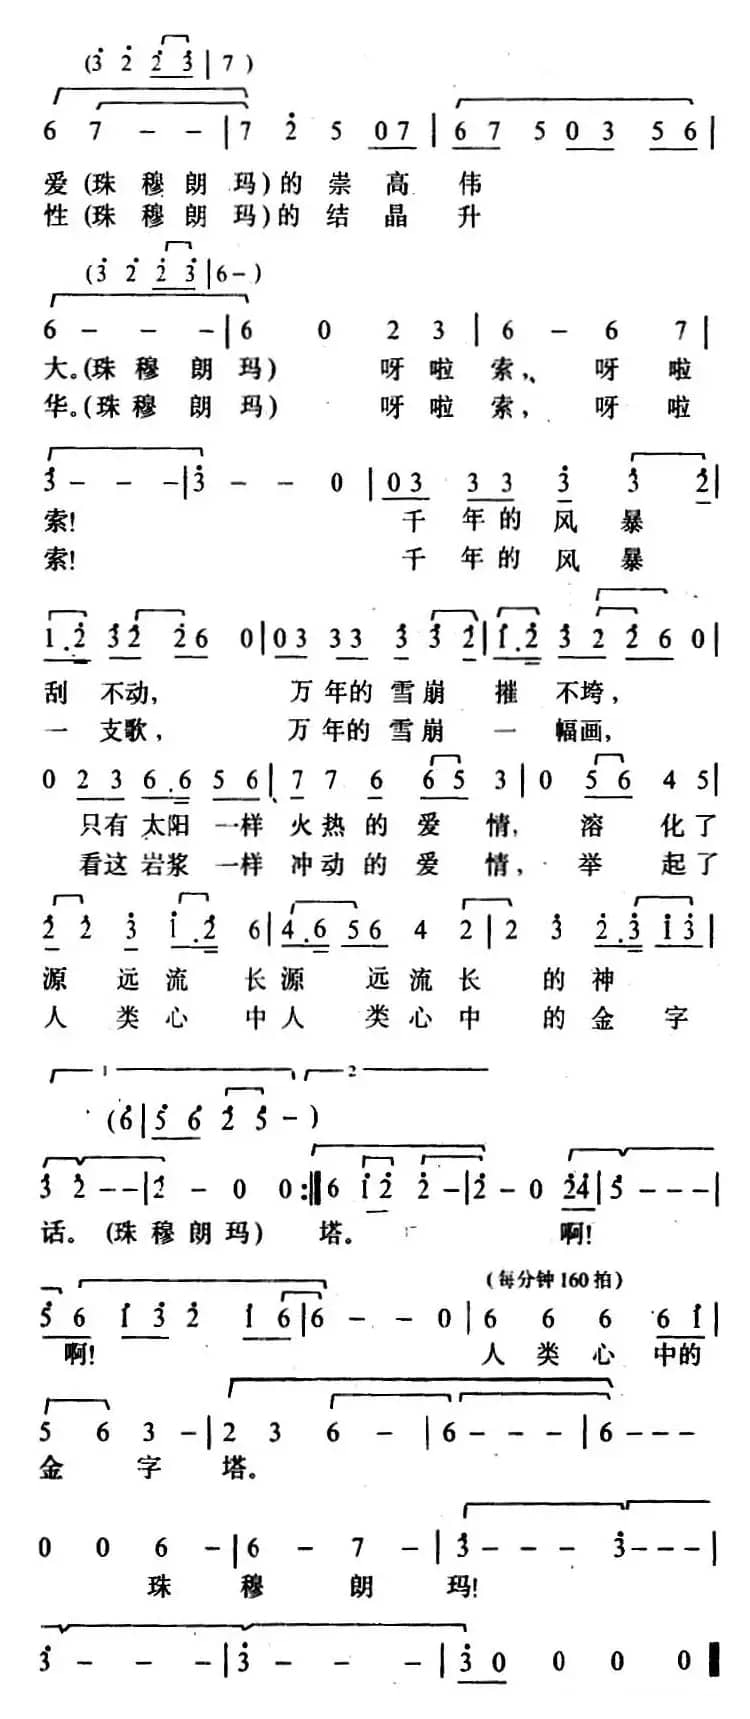 (3̇ 2̇ 2̇ 3̇ | 7 )
6 7 – – | 7 2̇ 5 0 7 | 6 7 5 0 3 5 6 |
爱(珠穆朗玛)的崇高伟
性(珠穆朗玛)的结晶升
(3̇ 2̇ 2̇ 3̇ | 6 – )
6 – – – | 6 0 2 3 | 6 – 6 7 |
大。(珠穆朗玛) 呀啦索、 呀啦
华。(珠穆朗玛) 呀啦索, 呀啦
3̇ – – – | 3̇ – – 0 | 0 3 3 3 3̇ 3̇ 2̇ |
索! 千年的风暴
索! 千年的风暴
1̇ . 2̇ 3̇ 2̇ 2̇ 6 0 | 0 3 3 3 3̇ 3̇ 2̇ | 1̇ . 2̇ 3̇ 2̇ 2̇ 6 0 |
刮不动, 万年的雪崩摧不垮,
一支歌, 万年的雪崩一幅画,
0 2 3 6 . 6 5 6 | 7 7 6 6 5 3 | 0 5 6 4 5 |
只有太阳一样火热的爱情, 溶化了
看这岩浆一样冲动的爱情, 举起了
2̇ 2̇ 3̇ 1̇ . 2̇ 6 | 4 . 6 5 6 4 2 | 2 3̇ 2̇ . 3̇ 1̇ 3̇ |
源远流长源远流长的神
人类心中人类心中的金字
1 2
(6̇ | 5̇ 6̇ 2̇ 5̇ – )
3̇ 2̇ – – | 2̇ – 0 0 :‖ 6 1̇ 2̇ 2̇ – | 2̇ – 0 2̇ 4̇ | 5̇ – – – |
话。(珠穆朗玛) 塔。 啊!
5̇ 6 1̇ 3̇ 2̇ 1̇ 6 | 6 – – 0 | 6 6 6 6 1̇ |
(每分钟160拍)
啊! 人类心中的
5 6 3 – | 2 3 6 – | 6 – – – | 6 – – –
金字塔。
0 0 6 – | 6 – 7 – | 3̇ – – – 3̇ – – – |
珠穆朗玛!
3̇ – – – | 3̇ – – – | 3̇ 0 0 0 0